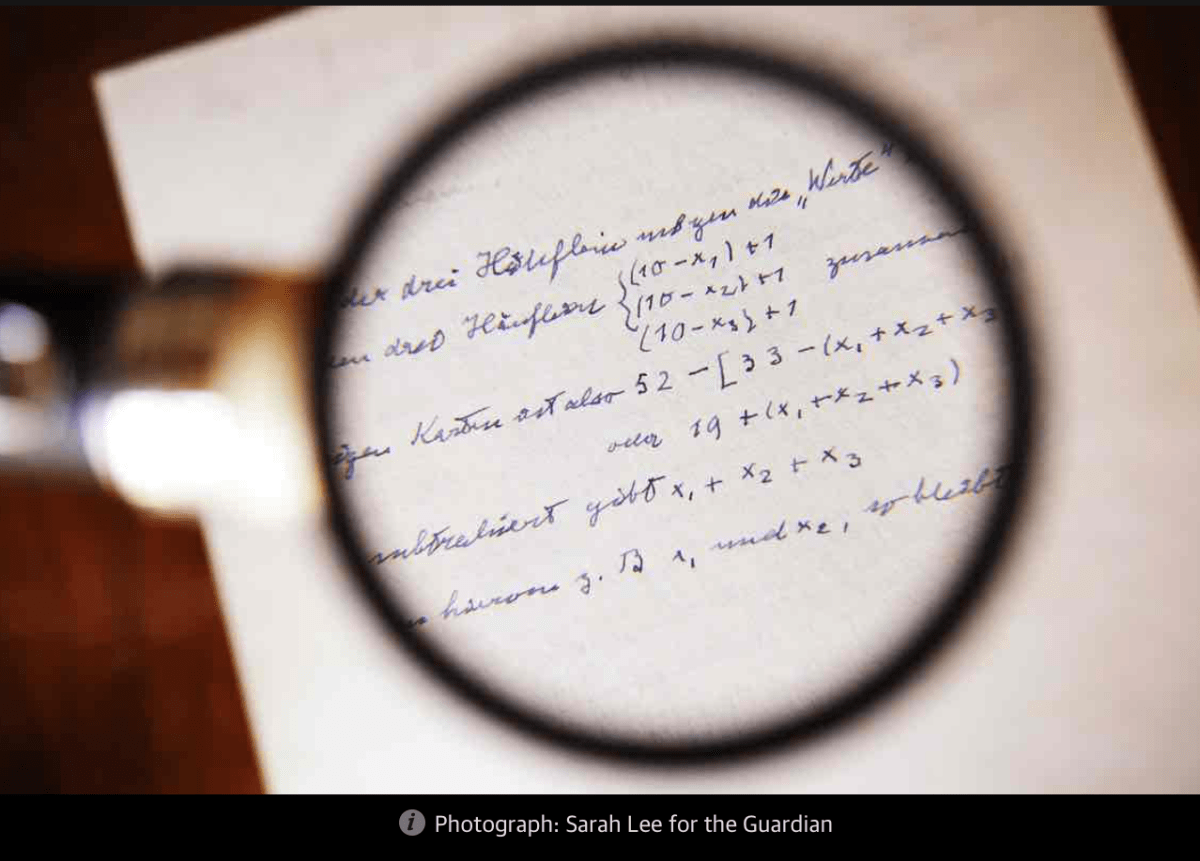 der drei Häuflein mögen die „Werte“
en drei Häuflein { (10 - x₁) + 1
(10 - x₂) + 1 zusammen
(10 - x₃) + 1
igen Karten ist also 52 - [33 - (x₁ + x₂ + x₃
oder 19 + (x₁ + x₂ + x₃)
subtrahiert gibt x₁ + x₂ + x₃
hiervon z. B x₁ und x₂, so bleibt
Photograph: Sarah Lee for the Guardian